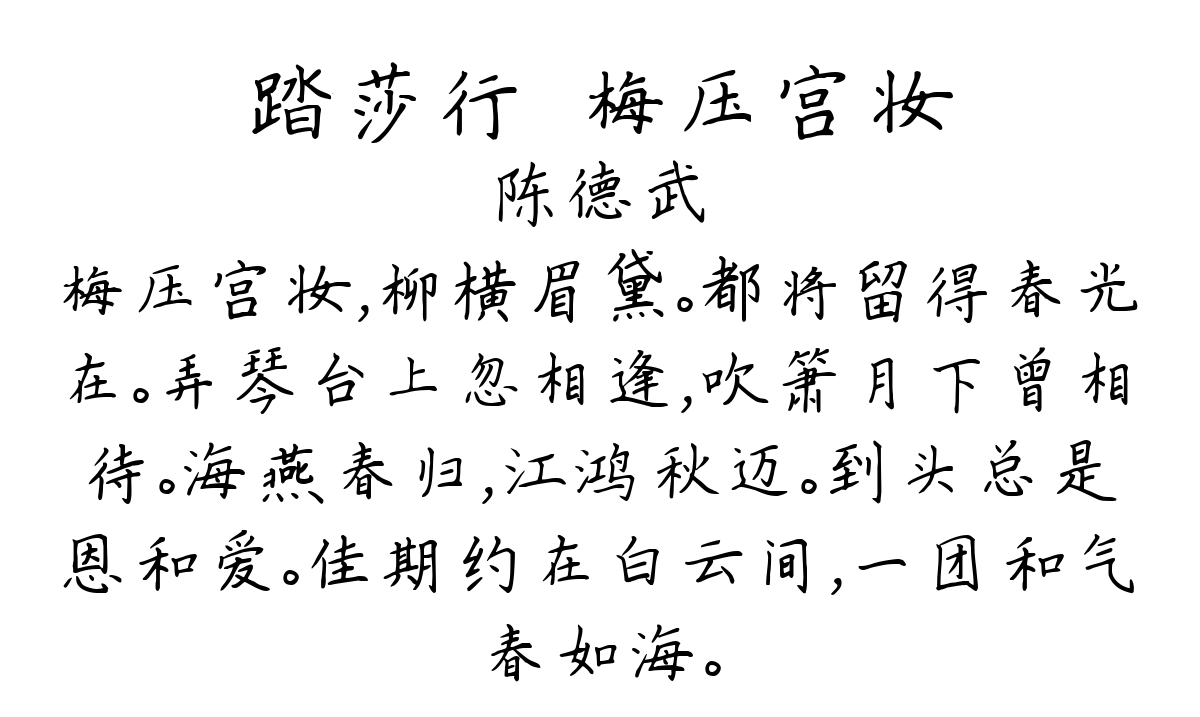 踏莎行 梅压宫妆
陈德武
梅压宫妆,柳横眉黛。都将留得春光
在。弄琴台上忽相逢,吹箫月下曾相
待。海燕春归,江鸿秋迈。到头总是
恩和爱。佳期约在白云间,一团和气
春如海。